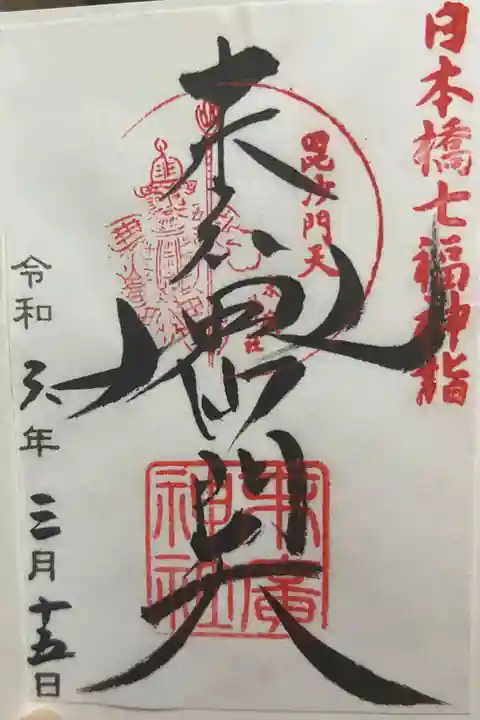 日本橋七福神詣
毘沙門天
末広毘沙門天
末廣神社
令和六年三月十五日